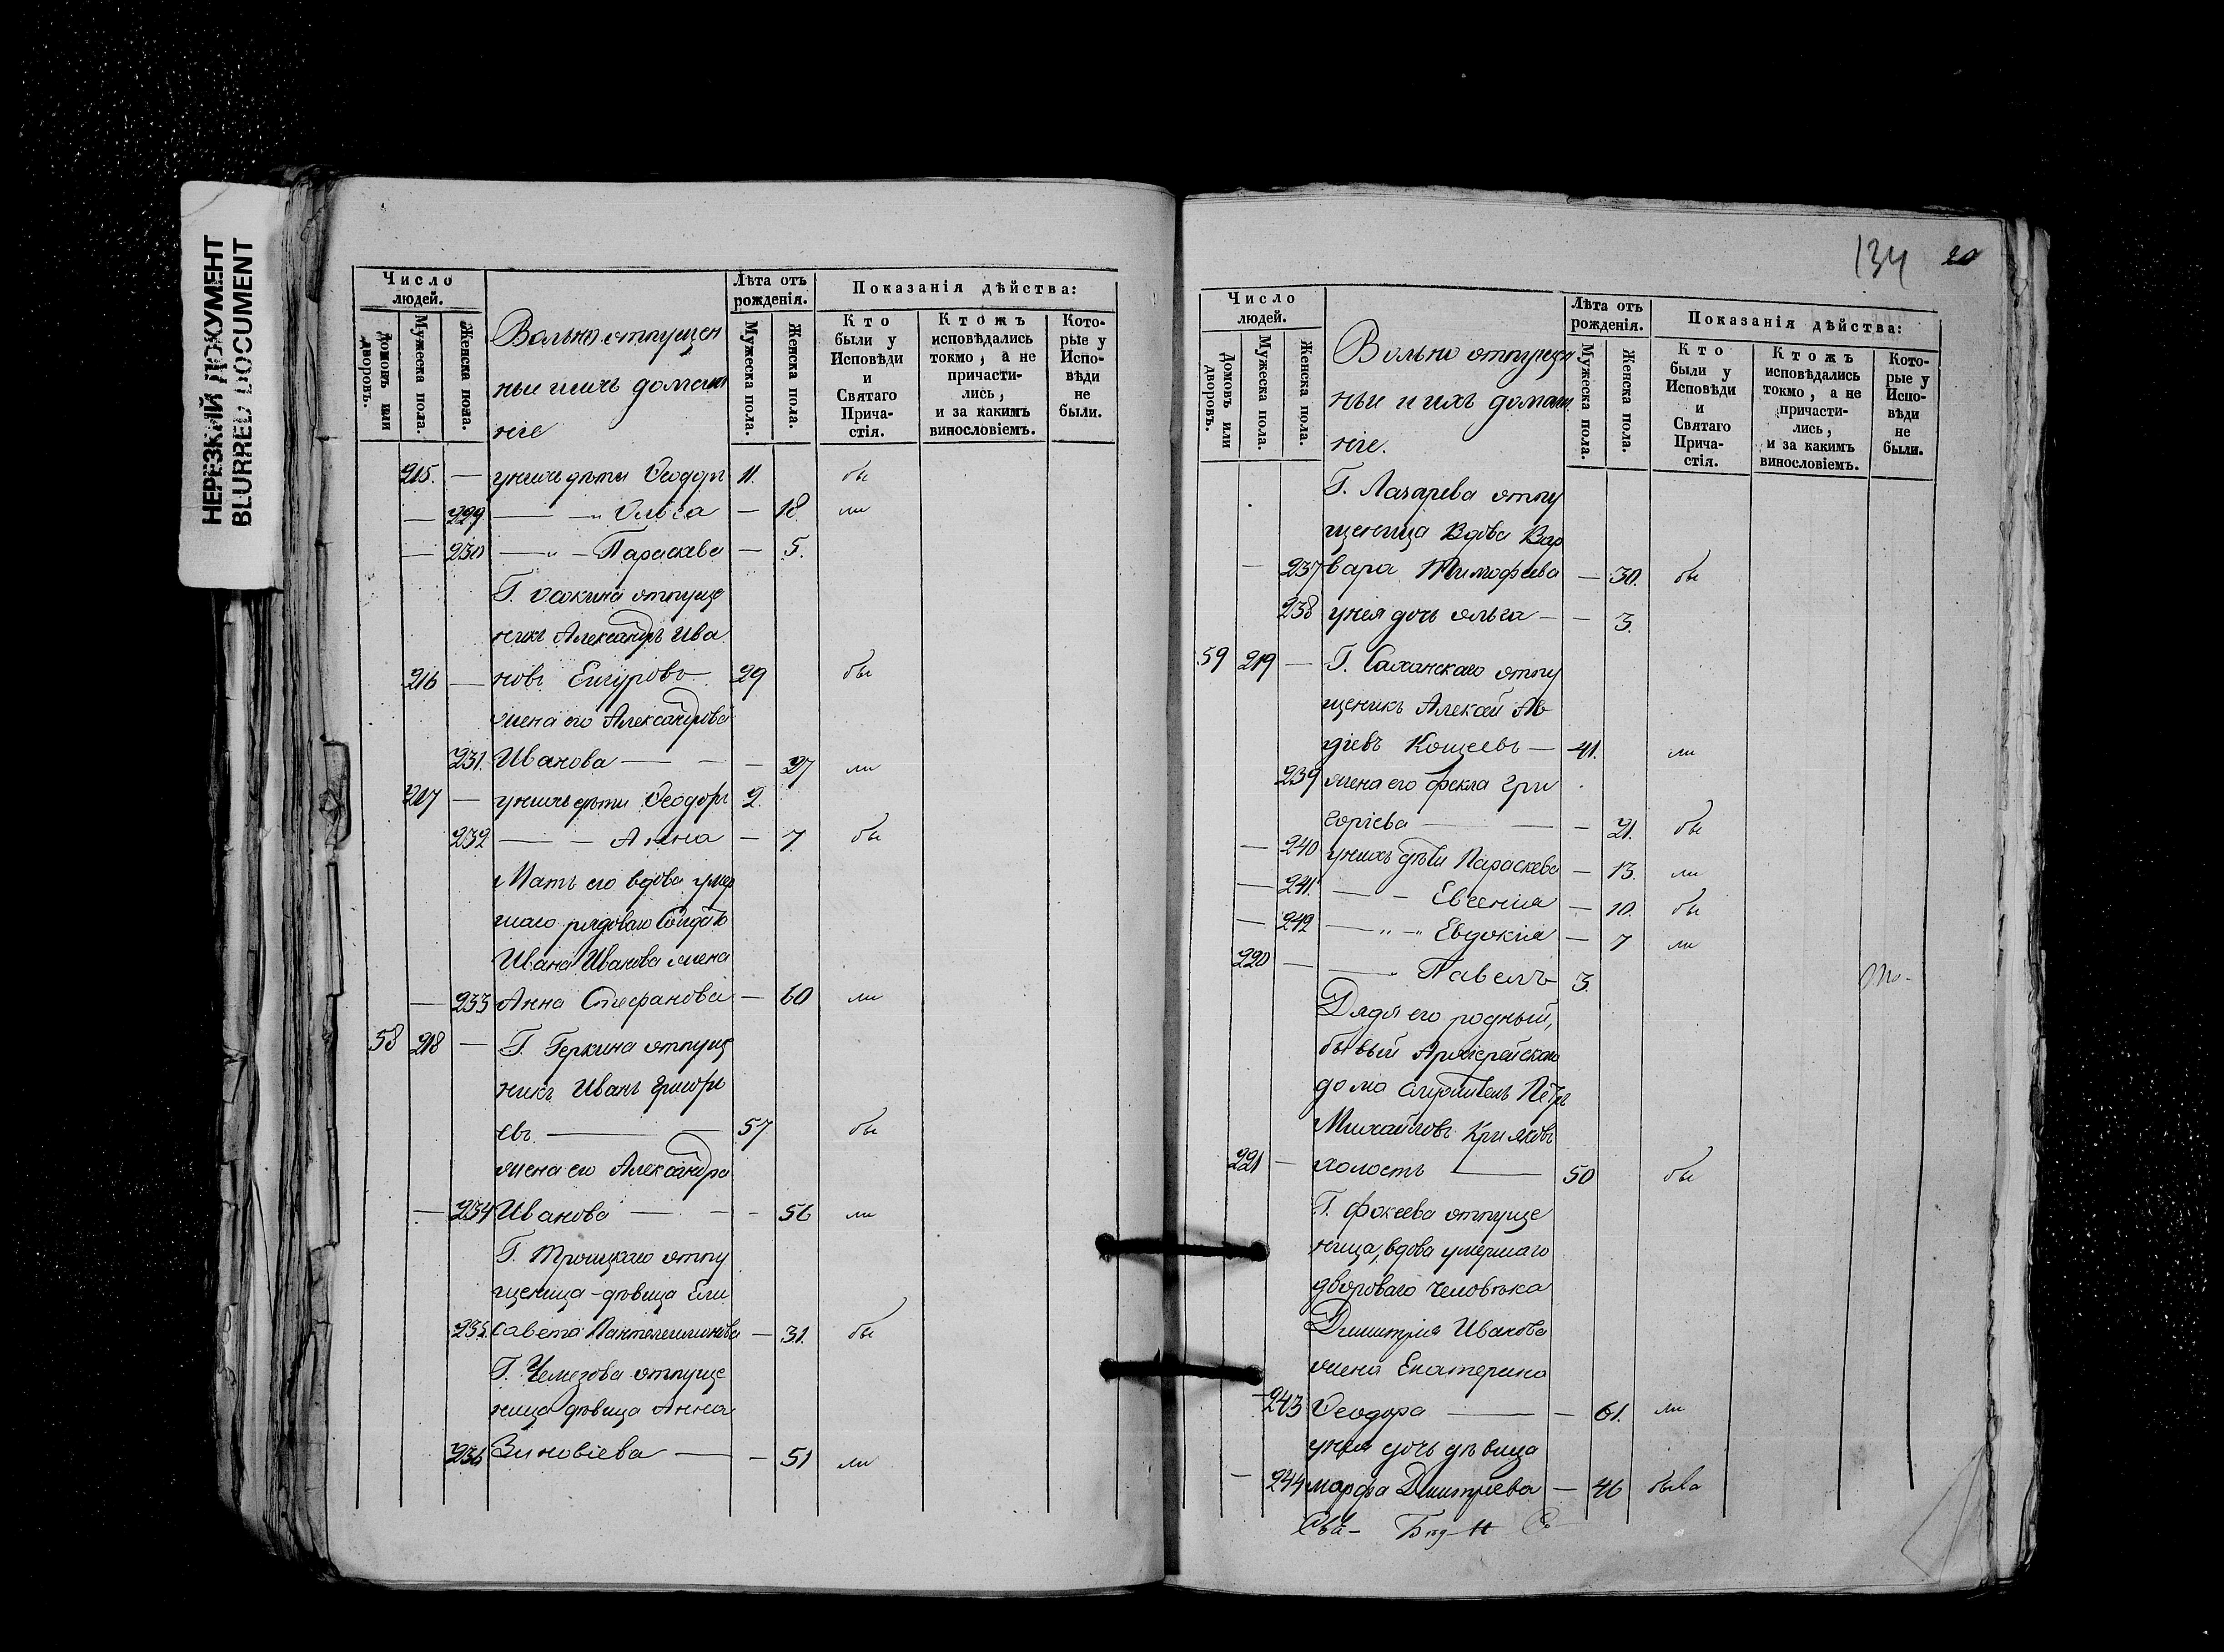 НЕРЕЗКИЙ ДОКУМЕНТ
BLURRED DOCUMENT
Число людей.
Домовъ или дворовъ.
Мужеска пола.
Женска пола.
Вольно отпущен
ные и ихъ домаш
ніе
Лѣта отъ рожденія.
Мужеска пола.
Женска пола.
Показанія дѣйства:
Кто были у Исповѣди и Святаго Прича-стія.
Ктожъ исповѣдались токмо, а не причасти-лись, и за какимъ винословіемъ.
Кото-рые у Испо-вѣди не были.
215. — у нихъ дѣти Ѳеодоръ 11. бы
— 229 — „ Ольга — 18. ли
— 230 — „ — Параскева — 5.
Г. отпуще
никъ Александръ Ива
216 — новъ 29 бы
жена его Александра
231. Иванова — — — 27 ли
217 — у нихъ дѣти Ѳеодоръ 2.
232 — — Анна — 7 бы
Мать его вдова умер
шаго рядоваго
Ивана Иванова жена
— 233 Анна Стефанова — 60 ли
58 218 — Г. Геркина отпущ
никъ Иванъ Григорь
евъ. — — 57 бы
жена его Александра
— 234 Иванова — — — 56 ли
Г. Троицкаго отпу
щеница — дѣвица Ели
235. савета Пантелеимонова — 31. бы
Г. Чемезова отпуще
ница дѣвица Анна
236 Зиновіева — — 51 ли
134 20
Число людей.
Домовъ или дворовъ.
Мужеска пола.
Женска пола.
Вольно отпущен
ные и ихъ домаш
ніе.
Лѣта отъ рожденія.
Мужеска пола.
Женска пола.
Показанія дѣйства:
Кто были у Исповѣди и Святаго Прича-стія.
Ктожъ исповѣдались токмо, а не причасти-лись, и за какимъ винословіемъ.
Кото-рые у Испо-вѣди не были.
Г. Лазарева отпу
щеница Вдова Вар
— 237 вара Тимофеева — 30. бы
238 у нея дочь Ольга — — 3.
59 219 — Г. Саханскаго отпу
щеникъ Алексей Ав
діевъ Кощеевъ — 41. ли
239 жена его Фекла Гри
горіева — — — 21. бы
— 240 у нихъ дѣти Параскева — 13. ли
— 241. — — Евгенія — 10. бы
— 242 — „ — „ Евдокія — 7 ли
220 — — „ Павелъ 3.
Дядя его родный,
бывый Архіерейскаго
дома служитель Петръ
Михайловъ
221 — холостъ — 50 бы
Г. Фокеева отпуще
ница, вдова умершаго
двороваго человѣка
Димитрія Иванова
жена Екатерина
— 243 Ѳеодора — — 61. ли
у нея дочь дѣвица
— 244 Марфа Димитріева — 46 была